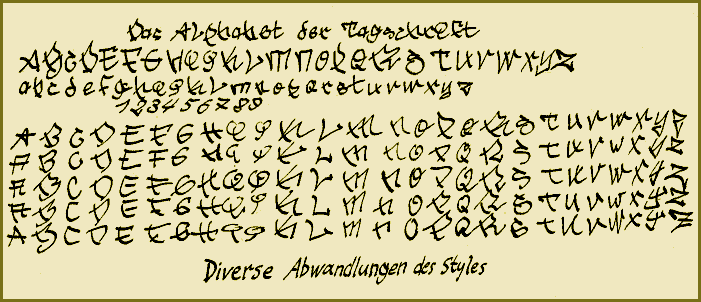 Das Alphabet der Tagschrift
ABCDEFGHIJKLMNOPQRSTUVWXYZ
abcdefghijklmnopqrstuvwxyz
1234567890
ABCDEFGHIJKLMNOPQRSTUVWXYZ
ABCDEFGHIJKLMNOPQRSTUVWXYZ
ABCDEFGHIJKLMNOPQRSTUVWXYZ
ABCDEFGHIJKLMNOPQRSTUVWXYZ
ABCDEFGHIJKLMNOPQRSTUVWXYZ
Diverse Abwandlungen des Styles